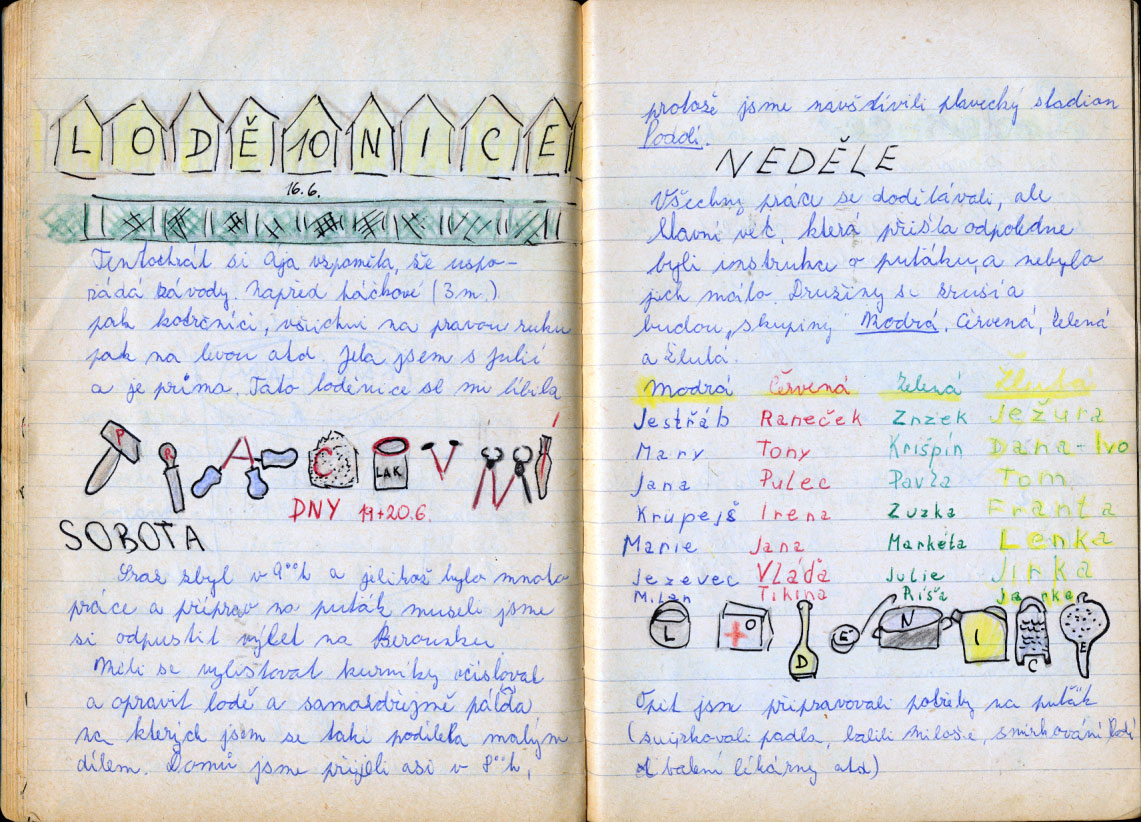 LODĚ10NICE
16.6.
Tentochrát si Aja vzpoměla, že uspo-
řádá závody. Napřed háčkové (3 m.)
pak kotrčníci, všichni na pravou ruku
pak na levou atd. Jela jsem s Julií
a je príma. Tato loděnice se mi líbila
PRACOVNÍ
LAK
DNY 19+20.6.
SOBOTA
Sraz zbyl v 9°°h a jelikož bylo mnoho
práce a příprav na puťák museli jsme
si odpustit výlet na Berounku.
Měli se vyčistovat kurníky očíslovat
a opravit lodě a samosdřejmě pádla
na kterých jsem se taki podílela malým
dílem. Domů jsme přijeli asi v 8°°h,
protože jsme navštívili plavecký stadion
Podolí.
NEDĚLE
Všechny práce se dodělávali, ale
hlavní věc, která přišla odpoledne
byli instrukce o puťáku, a nebylo
jich málo. Družiny se zruší a
budou „skupiny" Modrá, Červená, Zelená
a Žlutá.
Modrá Červená Zelená Žlutá
Jestřáb Raneček Znzek Ježura
Mary Tony Krišpín Dana-Ivo
Jana Pulec Pavla Tom
Krupejš Irena Zuzka Franta
Marie Jana Markéta Lenka
Jezevec Vláďa Julie Jirka
Milan Tikina Ríša
LODĚNICE
Opět jsme připravovali potřeby na puťák
(smirkovali padla, balili Miloše, smirkování lodí
balení lékárny atd)